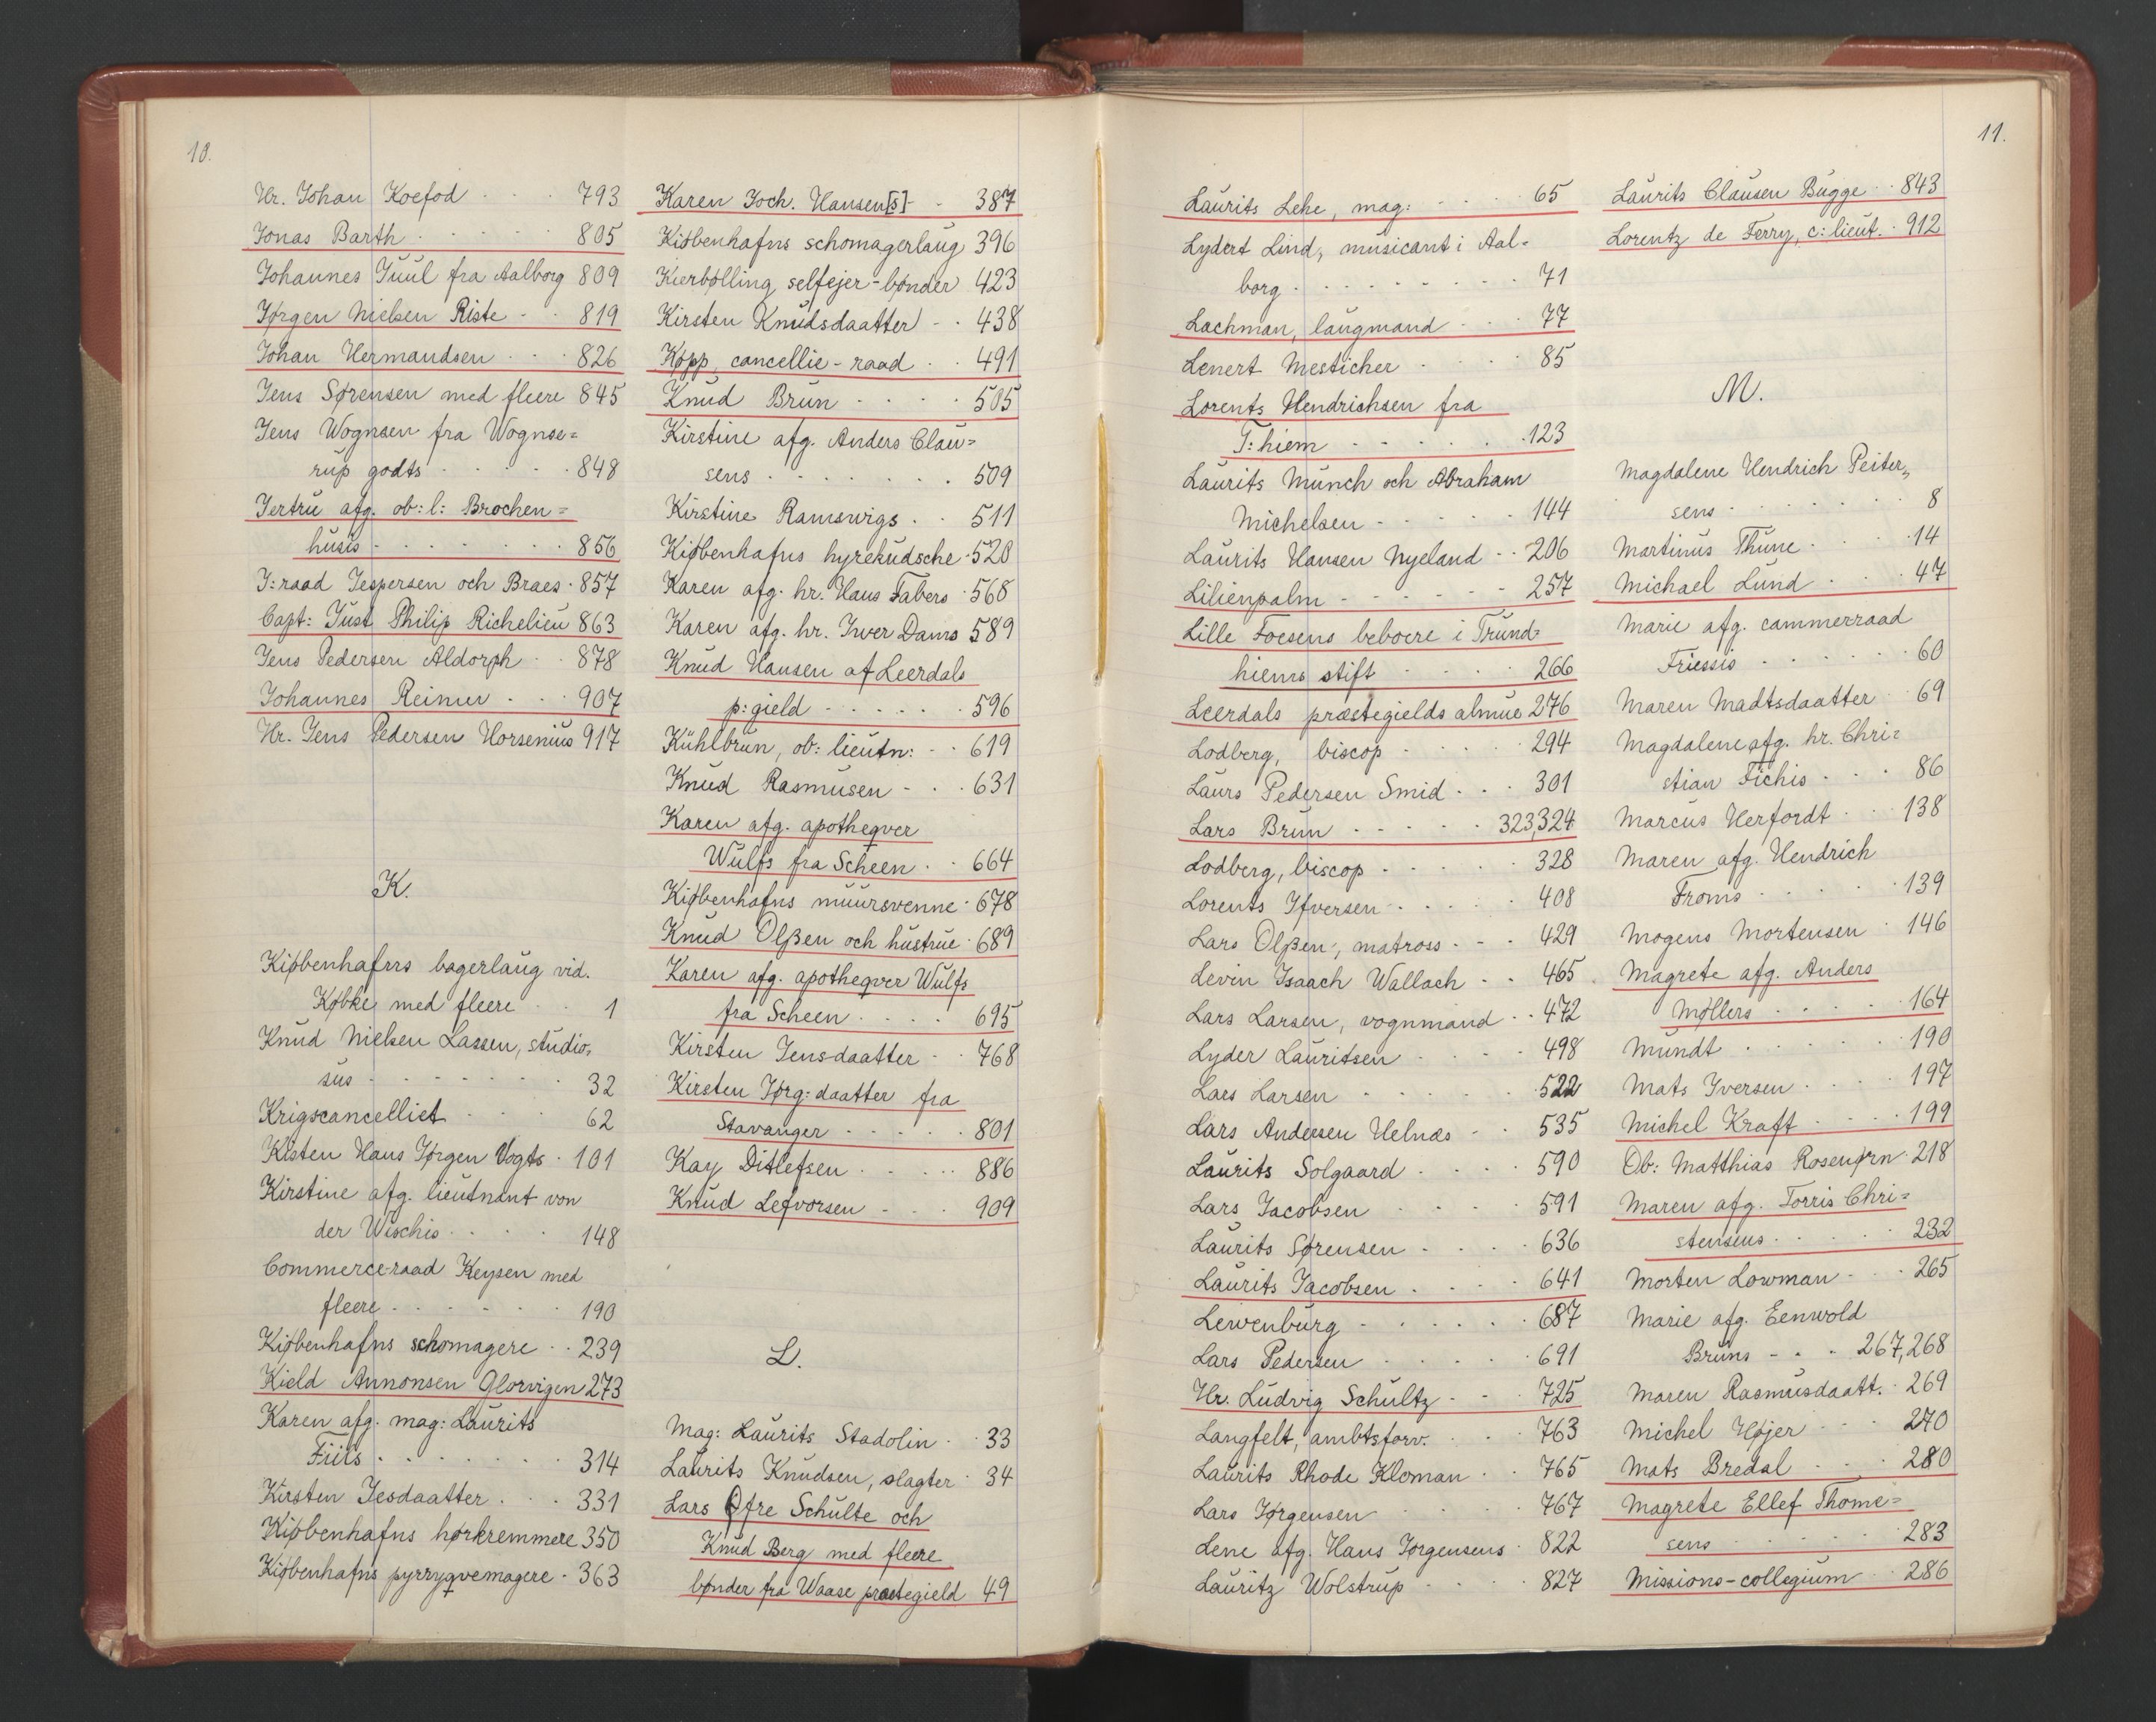 10.
Hr. Johan Koefod 793
Jonas Barth 805
Johannes Juul fra Aalborg 809
Jørgen Nielsen Riste 819
Johan Hermandsen 826
Jens Sørensen med fleere 845
Jens Wognsen fra Wognse=
rup godts 848
Jertru afg. ob:l: Brochen=
husis 856
J:raad Jespersen och Braes 857
Capt: Just Philip Richelieu 863
Jens Pedersen Aldorph 878
Johannes Reimer 907
Hr. Jens Pedersen Horsenius 917
K.
Kiøbenhafns bagerlaug vid.
Købke med fleere 1
Knud Nielsen Lassen, studio=
sus 32
Krigscancelliet 62
Kisten Hans Jørgen Vogts 101
Kirstine afg. lieutnant von
der Wischis 148
Commerce-raad Keysen med
fleere 190
Kiøbenhafns schomagere 239
Kield Annonsen Glorvigen 273
Karen afg. mag: Laurits
Fiils 314
Kirsten Jesdaatter 331
Kiøbenhafns hørkremmere 350
Kiøbenhafns pyrryqvemagere 363
Karen Joch. Hansen[s] 387
Kiøbenhafns schomagerlaug 396
Kierbølling selfejer-bønder 423
Kirsten Knudsdaatter 438
Køpp, cancellie-raad 491
Knud Brun 505
Kirstine afg. Anders Clau=
sens 509
Kirstine Ramswigs 511
Kiøbenhafns hyrekudsche 520
Karen afg. hr. Hans Fabers 568
Karen afg. hr. Iwer Dams 589
Knud Hansen af Leerdals
p:gield 596
Kühlbrun, ob: lieutn: 619
Knud Rasmusen 631
Karen afg. apotheqver
Wulfs fra Scheen 664
Kiøbenhafns muursvenne 678
Knud Olßen och hustrue 689
Karen afg. apotheqver Wulfs
fra Scheen 695
Kirsten Jensdaatter 768
Kirsten Jørg:daatter fra
Stavanger 801
Kay Ditlefsen 886
Knud Lefvorsen 909
L.
Mag: Laurits Stadolin 33
Laurits Knudsen, slagter 34
Lars Øfre Schulte och
Knud Berg med fleere
bønder fra Waase præstegield 49
11.
Laurits Lehe, mag: 65
Lydert Lind, musicant i Aal=
borg 71
Lachman, laugmand 77
Lenert Mesticher 85
Lorents Hendrichsen fra
T:hiem 123
Laurits Munch och Abraham
Michelsen 144
Laurits Hansen Nyeland 206
Lilienpalm 257
Lille Foesens beboere i Trund=
hiems stift 266
Leerdals præstegields almue 276
Lodberg, biscop 294
Laurs Pedersen Smid 301
Lars Brun 323,324
Lodberg, biscop 328
Lorents Ifversen 408
Lars Olßen, matross 429
Levin Isaach Wallach 465
Lars Larsen, vognmand 472
Lyder Lauritsen 498
Laes Larsen 522
Lars Andersen Helnæs 535
Laurits Solgaard 590
Lars Jacobsen 591
Laurits Sørensen 636
Laurits Jacobsen 641
Lewenburg 687
Lars Pedersen 691
Hr. Ludvig Schultz 725
Langfelt, ambtsforv. 763
Laurits Rhode Kloman 765
Lars Jørgensen 767
Lene afg. Hans Jørgensens 822
Lauritz Wolstrup 827
Laurits Clausen Bugge 843
Lorentz de Ferry, c:lieut. 912
M.
Magdalene Hendrich Peiter„
sens 8
Martinus Thune 14
Michael Lund 47
Marie afg. cammerraad
Friessis 60
Maren Madtsdaatter 69
Magdalene afg. hr. Chri=
stian Fichis 86
Marcus Herfordt 138
Maren afg. Hendrich
Froms 139
Mogens Mortensen 146
Magrete afg. Anders
Møllers 164
Mundt 190
Mats Iversen 197
Michel Kraft 199
Ob: Matthias Rosenørn 218
Maren afg. Torris Chri=
stensens 232
Morten Lowman 265
Marie afg. Eenwold
Bruns 267,268
Maren Rasmusdaatt. 269
Michel Højer 270
Mats Bredal 280
Magrete Ellef Thome=
sens 283
Missions-collegium 286